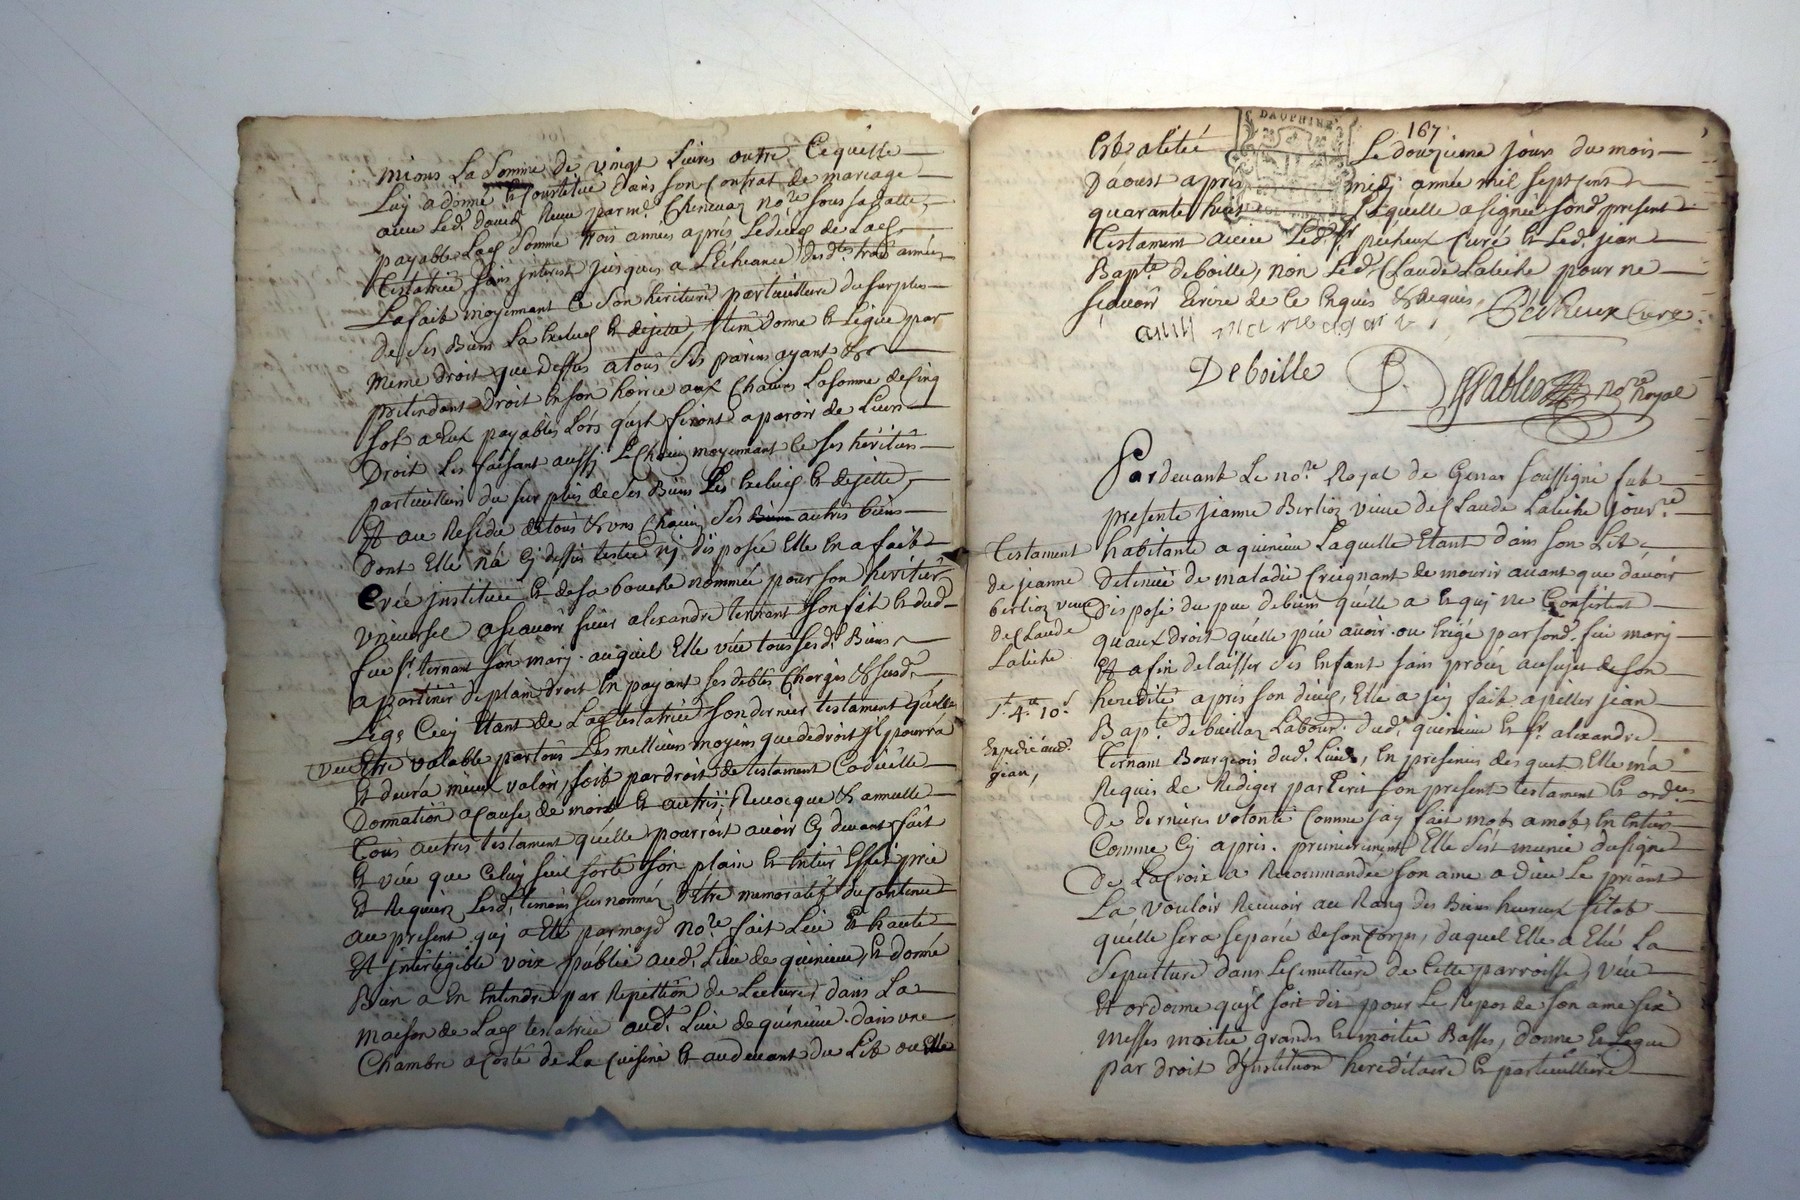 mions La Somme de vingt Livres outre Cequelle
Luy a donné Et Constitué dans son Contrat de mariage
avec Led. David Receu par me. Chenevaz nore. sous sa datte,
payables Lad. somme trois années après Ledeces de Lad.
testatrice sans jnterest jusques a L'Echeance des dtes. trois années
La fait moyennant Ce Son heritiere particulliere du surplus
de Ses Biens La Exclud Et dejette, jtem donne Et Legue par
meme droit que dessus a tous Ses parens ayant Et
pretendant droit En son hoirie aux Chacuns La somme de Cinq
sols a Eux payables Lors quils feront aparoir de Leur
Droit Les faisant aussy Chacun moyennant Ce Ses heritiers
particulliers du sur plus de Ses Biens Les Exclud Et dejette,
Et au Residu de tous Et uns Chacuns Ses autres biens
Dont Elle n'a Cy dessus testé ny disposée Elle En a fait
Créé jnstitué Et de sa bouche nommée pour son heritier
Universel a scavoir sieur alexandre ternant son fils Et dud.
feu sr. ternant son mary. auquel Elle veut tous Sesd. Biens
apartenir de plain droit En payant ses debtes Charges Et susd.
Legs Cecy Etant de Lad. testatrice son dernier testament quelle
veut Etre valable par tous Les meilleurs moyens que de droit jl pourra
Et devra mieux valoir, soit par droit de testament Codicille
Donnation a Cause de mort Et autres; Revocque Et annulle
Tous autres testament qu'elle pourroit avoir Cy devant fait
Et veut que Celuy seul sorte son plain Et Entier Effet prie
Et Requier Lesd. temoins surnommés d'Etre memoratif du Contenu
au present quj a Eté par moyd nore. fait Leu Et haute
Et jntelegible voix publié aud. Lieu de quirieu, Et donné
Bien a En Entendre par Repettion de Lecture, dans La
maison de Lad. testatrice aud. Lieu de quirieu. dans une
Chambre a Costé de La Cuisine Et au devant du Lit ou Elle
167
DAUPHINE
Est alitée Le douzieme jour du mois
Daoust apres midy année mil sept cens
quarante huit Laquelle a signée sond. present
Testament avec Led. sr pecheux Curé Et Led. jean
Bapte. deboille, non Led. Claude Laleche pour ne
scavoir Ecrire de Ce Enquis Et Requis,
Pécheux Curé
Deboille
Pablez nore. Royal
Pardevant Le nore. Royal de soussigné fut
presente jeanne Berlioz veuve de Claude Laleche jourre.
habitante a quirieu Laquelle Etant dans son Lit
Detenue de maladie Creignant de mourir avant que d'avoir
Disposé du peu de biens qu'elle a Et quj ne Consistent
qu'aux droit qu'elle peu avoir ou Exigé par fond. feu mary
Et afin de laisser Ses Enfant sans procez au sujet de Son
heredité après son déces, Elle a fait apeller jean
Bapte. deboillaz Labour. dud. quirieu Et sr. alexandre
Ternant Bourgeois dud. Lieu, En presence des quel Elle m'a
Requis de Rediger par Ecrit son present testament Et ordces
De dernieres volonté Comme j'ay fait mot a mot, En Entier
Comme Cy après. premierement Elle s'est munie du signe
de La Croix a Recommandée son ame a Dieu Le priant
La vouloir Recevoir au Rang des Bien heureux sitot
qu'elle sera separée de son Corps, duquel Elle a Elu La
Sepulture dans Le Cimettiere de Cette parroisse, veut
Et ordonne quil soit dit pour Le Repos de Son ame six
messes moitie grandes Et moitie Basses, donne Et Legue
par droit d'jnstitution hereditaire Et particulliere
Testament
de jeanne
berlioz veuve
de Claude
Laleche
Expedié aud.
jean,